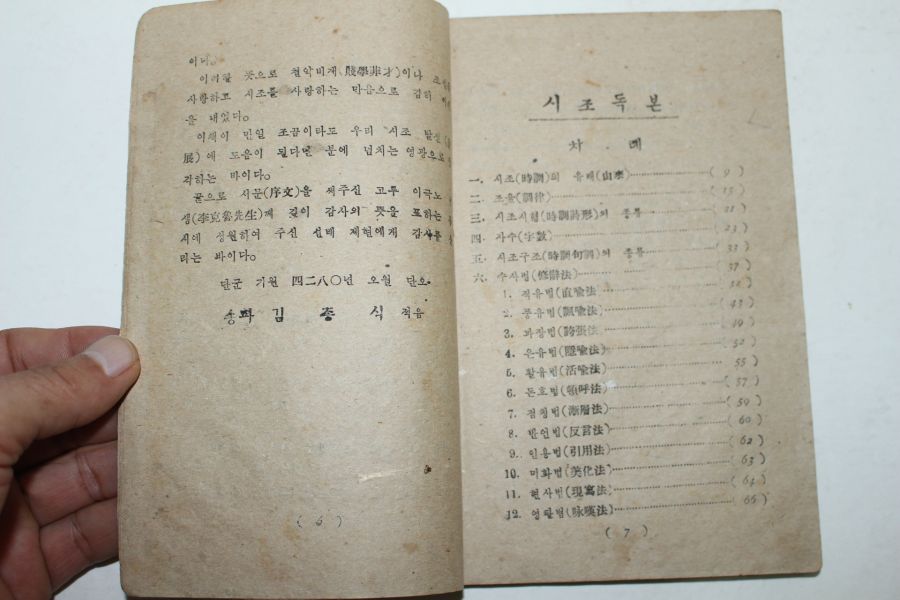 이다。
이러한 뜻으로 천학비재(賤學非才)이나
사랑하고 시조를 사랑하는 마음으로 감히
을 내었다。
이책이 만일 조곰이라도 우리 시조 발전
展)에 도움이 된다면 분에 넘치는 영광으로
각하는 바이다。
끝으로 서문(序文)을 써주신 고루 이극노
생(李克魯先生)께 깊이 감사의 뜻을 표하는
시에 성원하여 주신 선배 제현에게 감사를
리는 바이다。
단군 기원 四二八〇년 오월 단오
송파 김 종 식 적음
( 6 )
시조독본
차 례
一. 시조(時調)의 유래(由來) ( 9 )
二. 조율(調律) ( 15 )
三. 시조시형(時調詩形)의 종류 ( 21 )
四. 자수(字數) ( 23 )
五. 시조구조(時調句調)의 종류 ( 33 )
六. 수사법(修辭法) ( 37 )
1. 직유법(直喩法)
2. 풍유법(諷喩法) ( 43 )
3. 과장법(誇張法) ( 49 )
4. 은유법(隱喩法) ( 52 )
5. 활유법(活喩法) 55 )
6. 돈호법(頓呼法) ( 57 )
7. 점층법(漸層法) ( 59 )
8. 반언법(反言法) ( 60 )
9. 인용법(引用法) ( 62 )
10. 미화법(美化法) ( 63 )
11. 현사법(現寫法) ( 64 )
12. 영탄법(咏嘆法) ( 66 )
( 7 )